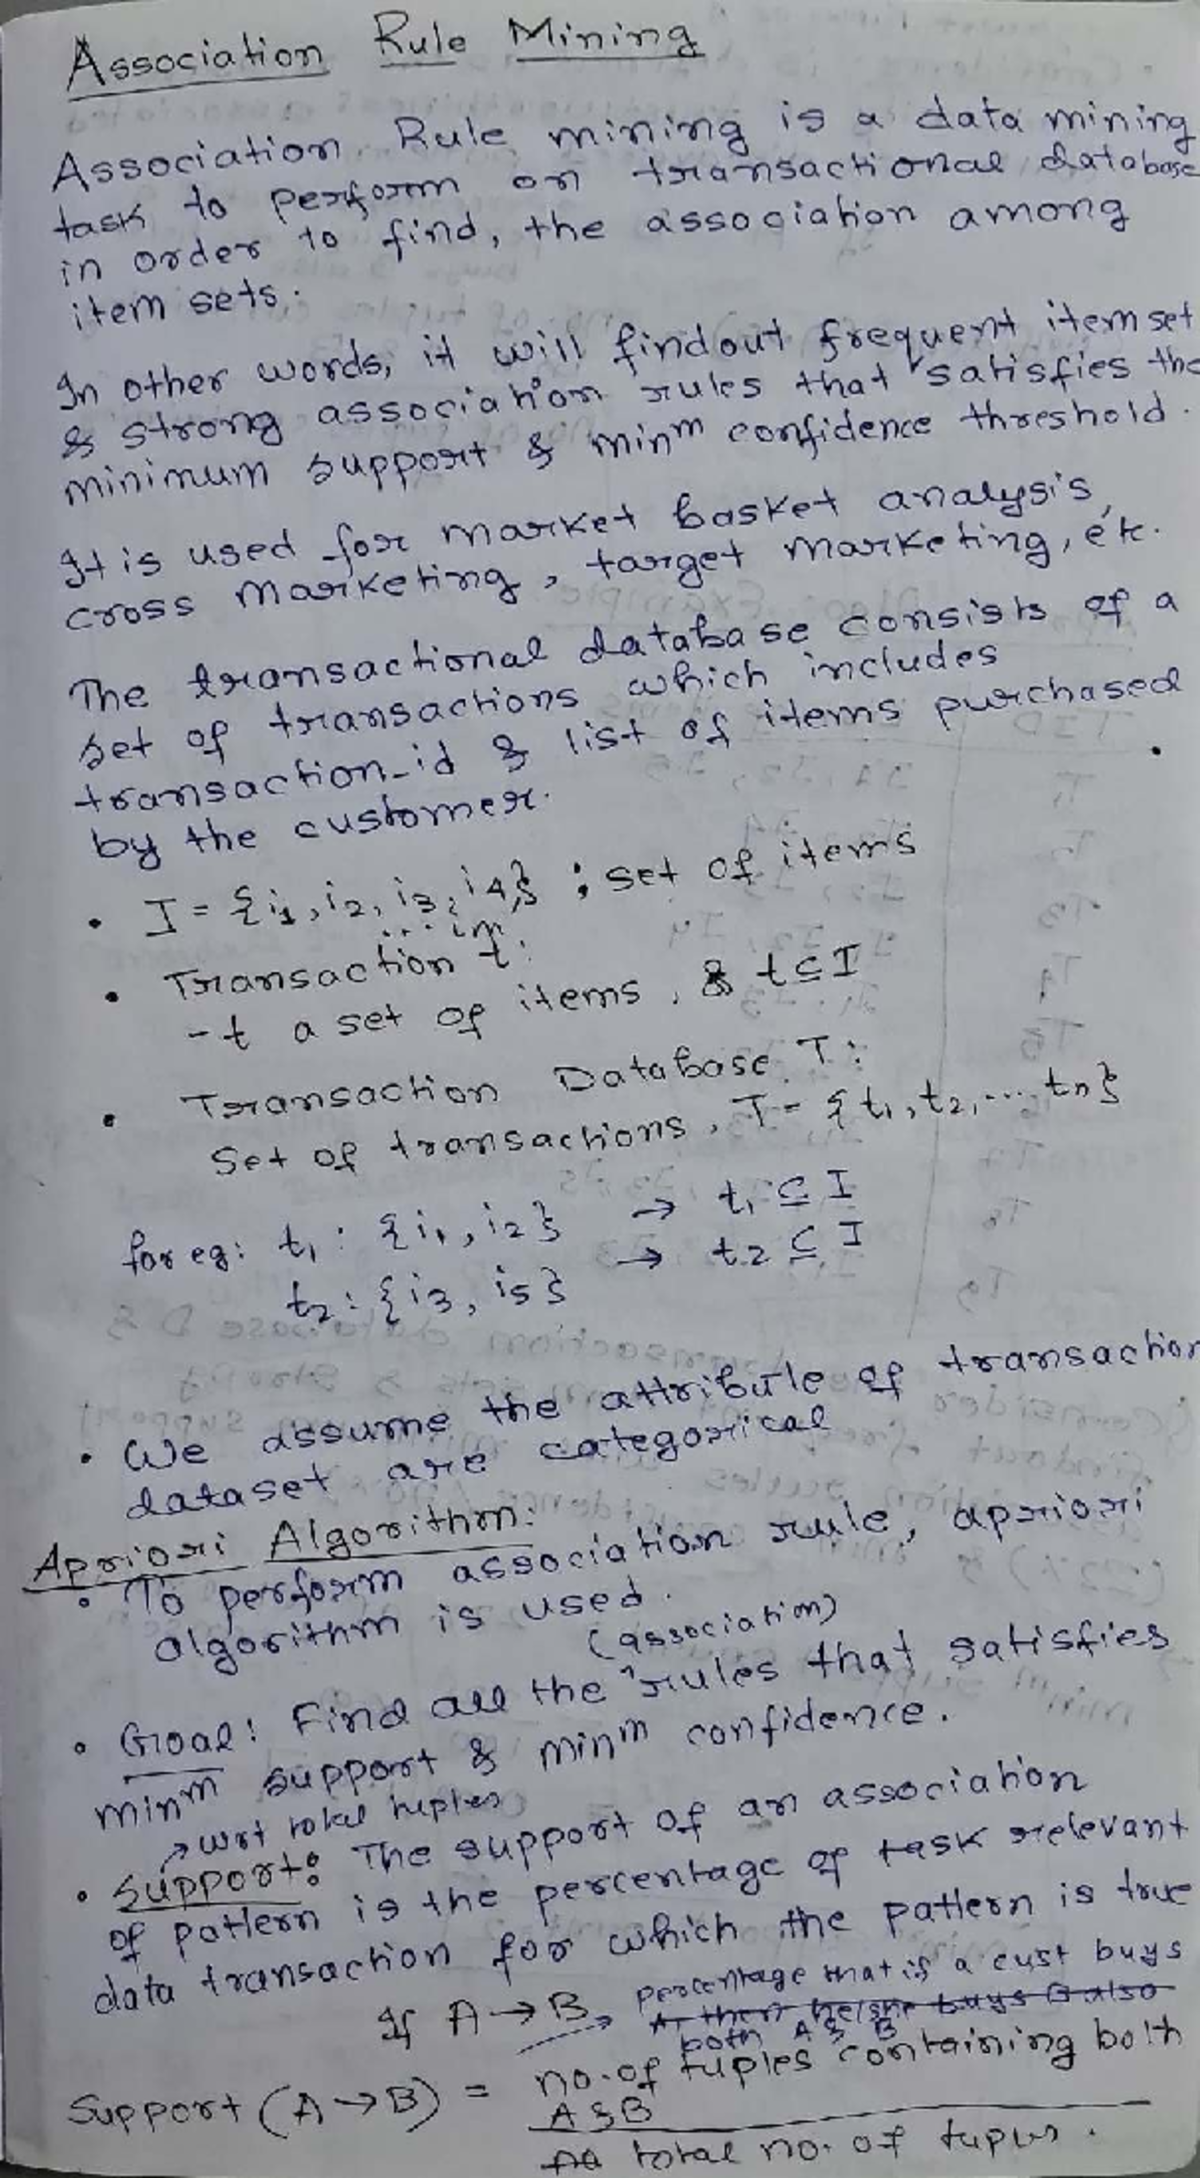 Association Rule Mining
Association Rule mining is a data mining
task to perform on transactional database
in order to find, the association among
item sets.
In other words, it will findout frequent itemset
& strong association rules that satisfies the
minimum support & minm confidence threshold.
It is used for market basket analysis,
cross marketing, target marketing, etc.
The transactional database consists of a
set of transactions which includes
transaction_id & list of items purchased
by the customer.
• I = {i1, i2, i3, i4,} ; set of items
... im
• Transaction t:
- t a set of items, & t ⊆ I
• Transaction Database T:
Set of transactions, T = {t1, t2, ... tn}
for eg: t1 : {i1, i2} → t1 ⊆ I
t2 : {i3, i5} → t2 ⊆ I
• We assume the attribute of transaction
dataset are categorical
Apriori Algorithm:
• To perform association rule, apriori
algorithm is used.
(association)
• Goal: Find all the ^ rules that satisfies
minm support & minm confidence.
→ wrt total tuples
• Support: The support of an association
of pattern is the percentage of task relevant
data transaction for which the pattern is true
If A → B → percentage that if a cust buys
A then he/she buys B also
both A & B
Support (A → B) = no. of tuples containing both
A & B
total no. of tuples.